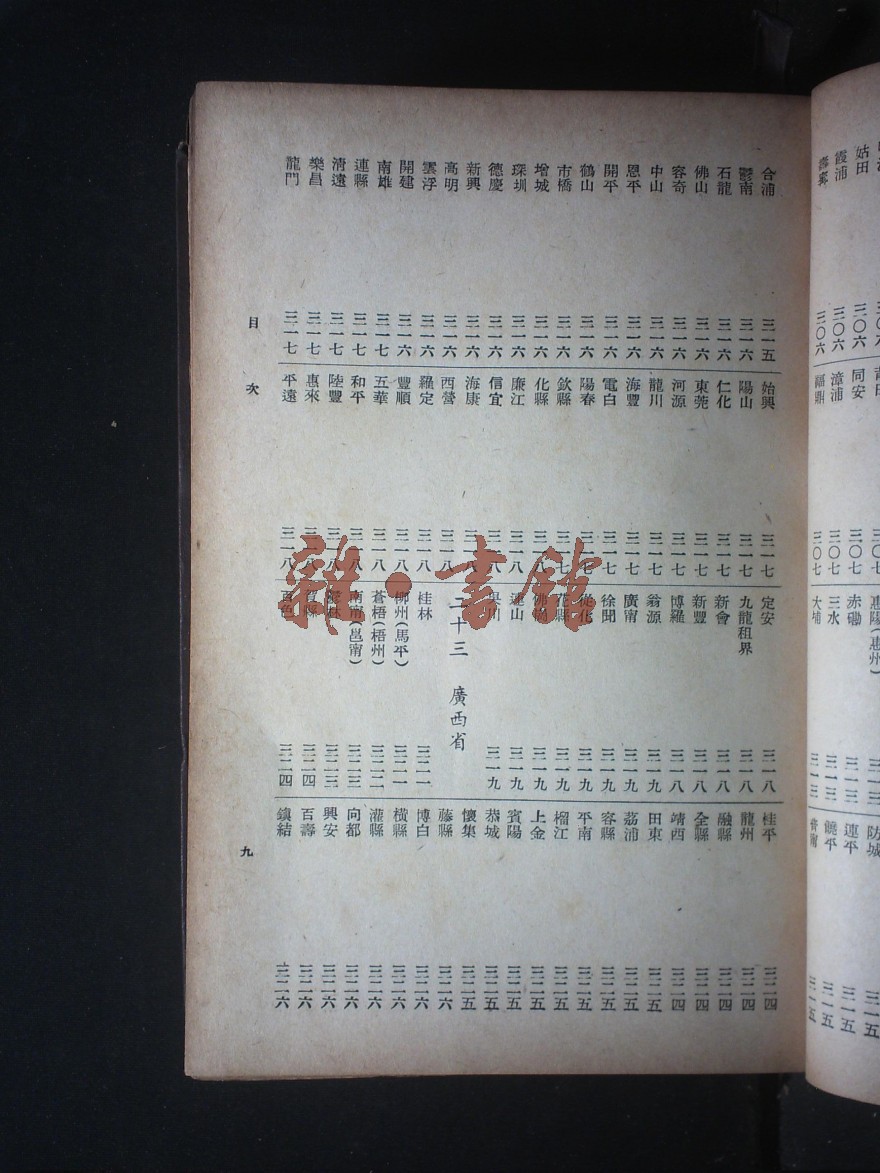 姑田 三〇六
霞浦 三〇六
三〇六
同安 三〇七
漳浦 三〇七
三〇七
惠陽(惠州)
赤磡 三一三
三水 三一三
大埔 三一三
防城 三一五
連平 三一五
饒平 三一五
普甯 三一五
合浦 三一五
鬱南 三一六
石龍 三一六
佛山 三一六
容奇 三一六
中山 三一六
恩平 三一六
開平 三一六
鶴山 三一六
市橋 三一六
增城 三一六
琛圳 三一六
德慶 三一六
新興 三一六
高明 三一六
雲浮 三一六
開建 三一六
南雄 三一七
連縣 三一七
清遠 三一七
樂昌 三一七
龍門 三一七
始興 三一七
陽山 三一七
仁化 三一七
東莞 三一七
河源 三一七
龍川 三一七
海豐 三一七
電白 三一七
陽春 三一七
欽縣 三一七
化縣 三一八
廉江 三一八
信宜 三一八
海康 三一八
西營 三一八
羅定 三一八
豐順 三一八
五華 三一八
和平 三一八
陸豐 三一八
惠來 三一八
平遠 三一八
定安 三一八
九龍租界 三一八
新會 三一八
新豐 三一八
博羅 三一八
翁源 三一九
廣甯 三一九
徐聞 三一九
從化 三一九
花縣 三一九
佛岡 三一九
連山 三一九
吳川 三一九
二十三 廣西省
桂林 三二一
柳州(馬平) 三二一
蒼梧(梧州) 三二二
南甯(邕甯) 三二三
鬱林 三二三
賀縣 三二四
百色 三二四
桂平 三二四
龍州 三二四
融縣 三二四
全縣 三二四
靖西 三二四
田東 三二五
荔浦 三二五
容縣 三二五
平南 三二五
榴江 三二五
上金 三二五
賓陽 三二五
恭城 三二五
懷集 三二五
藤縣 三二六
博白 三二六
橫縣 三二六
灌縣 三二六
向都 三二六
興安 三二六
百壽 三二六
鎮結 三二六
目次
九
雜·書館